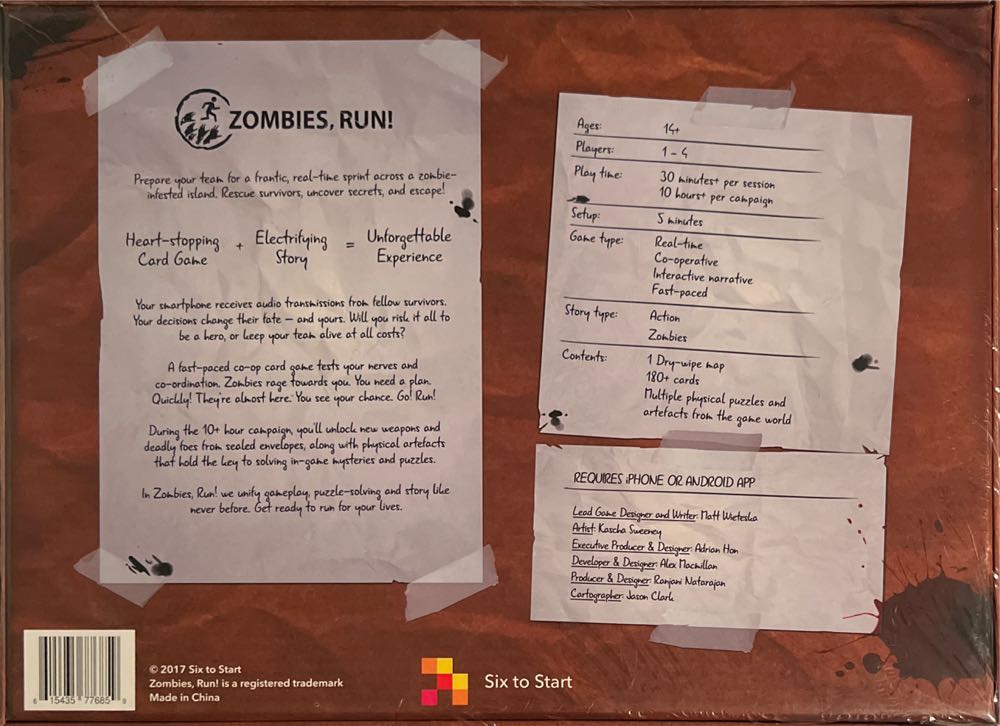 ZOMBIES, RUN!
Prepare your team for a frantic, real-time sprint across a zombie-
infested island. Rescue survivors, uncover secrets, and escape!
Heart-stopping + Electrifying = Unforgettable
Card Game Story Experience
Your smartphone receives audio transmissions from fellow survivors.
Your decisions change their fate – and yours. Will you risk it all to
be a hero, or keep your team alive at all costs?
A fast-paced co-op card game tests your nerves and
co-ordination. Zombies rage towards you. You need a plan.
Quickly! They're almost here. You see your chance. Go! Run!
During the 10+ hour campaign, you'll unlock new weapons and
deadly foes from sealed envelopes, along with physical artefacts
that hold the key to solving in-game mysteries and puzzles.
In Zombies, Run! we unify gameplay, puzzle-solving and story like
never before. Get ready to run for your lives.
Ages: 14+
Players: 1 - 4
Play time: 30 minutes+ per session
10 hours+ per campaign
Setup: 5 minutes
Game type: Real-time
Co-operative
Interactive narrative
Fast-paced
Story type: Action
Zombies
Contents: 1 Dry-wipe map
180+ cards
Multiple physical puzzles and
artefacts from the game world
REQUIRES iPHONE OR ANDROID APP
Lead Game Designer and Writer: Matt Wieteska
Artist: Kascha Sweeney
Executive Producer & Designer: Adrian Hon
Developer & Designer: Alex Macmillan
Producer & Designer: Ranjani Natarajan
Cartographer: Jason Clark
6 15435 77685 9
© 2017 Six to Start
Zombies, Run! is a registered trademark
Made in China
Six to Start